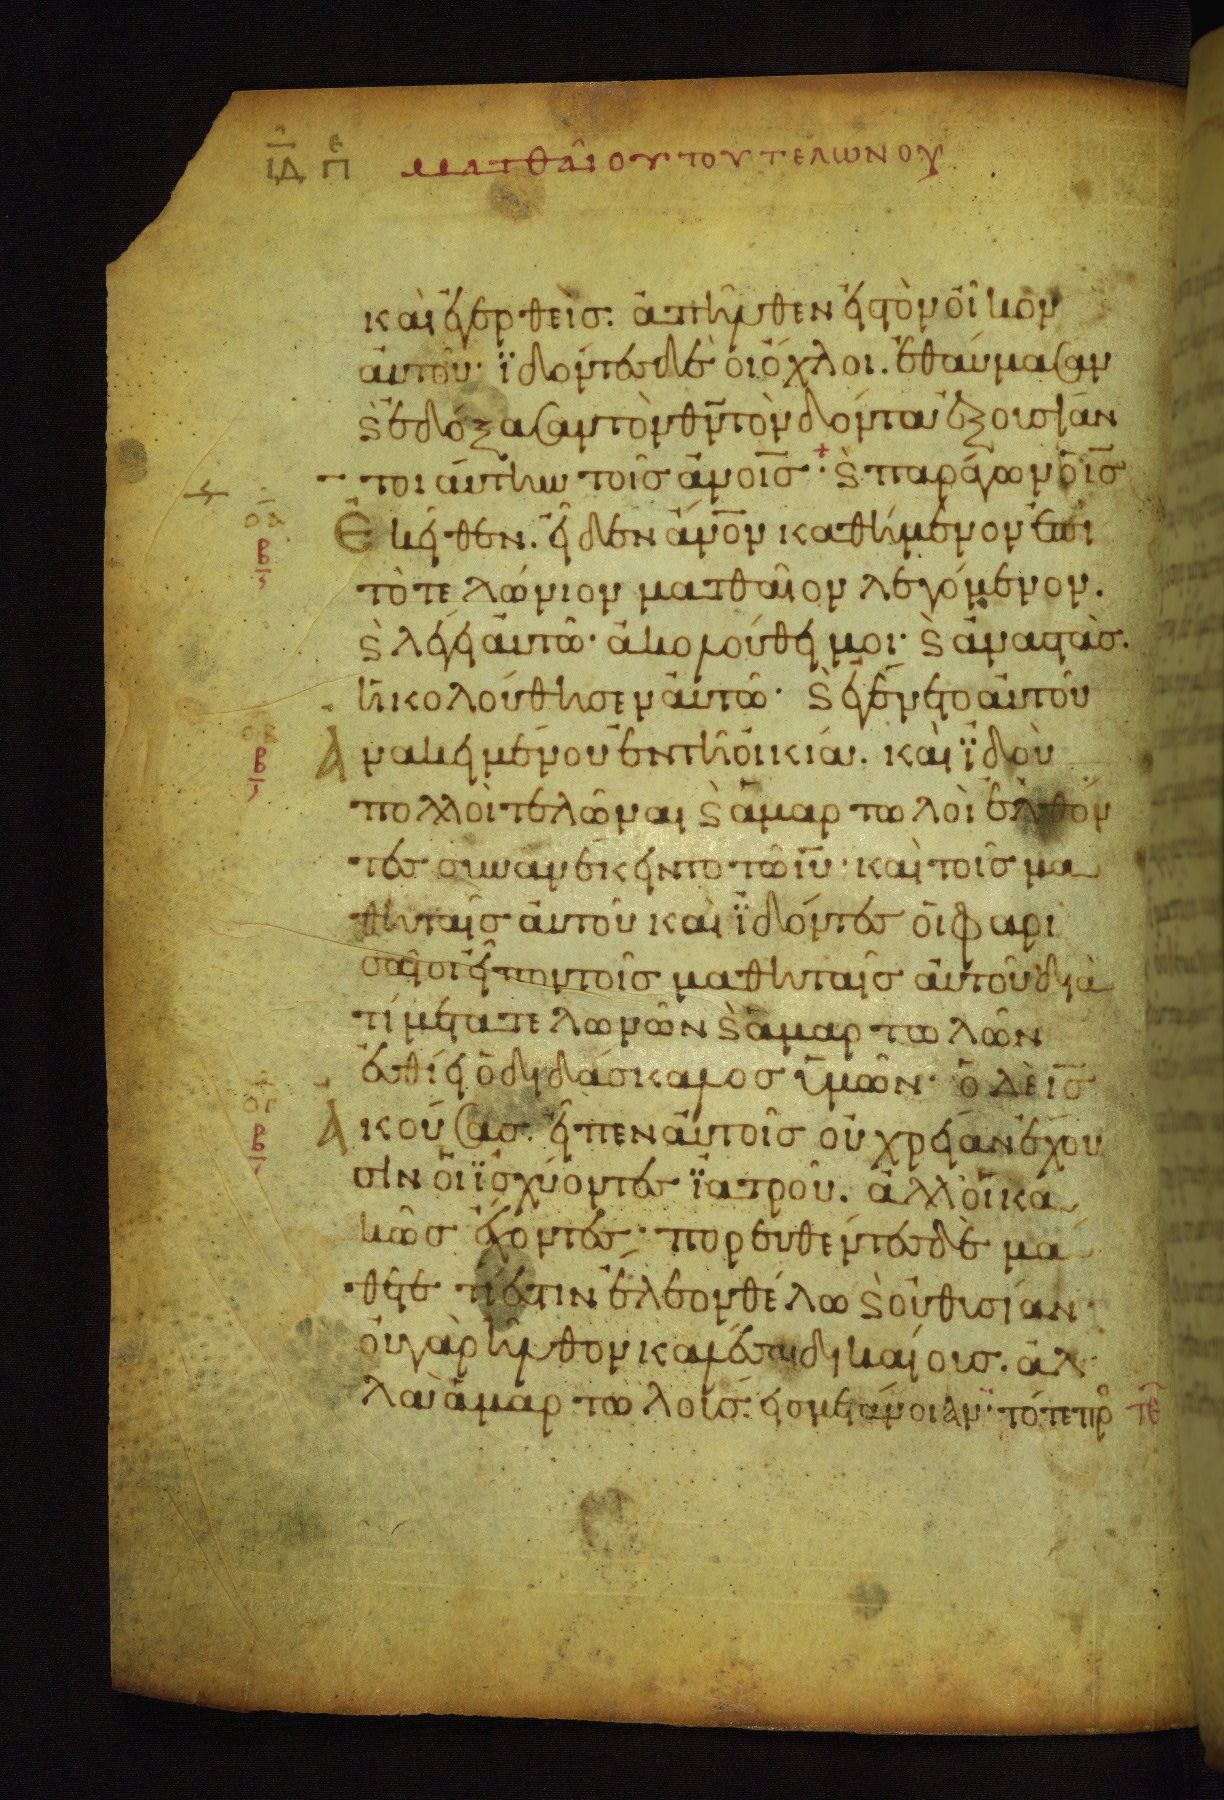 ΙΔ Πε ματθαίου του τελώνου
καὶ ἐγερθεὶς. ἀπῆλθεν εἰς τὸν οἶκον
αὐτοῦ· ἰδόντες δὲ οἱ ὄχλοι. ἐθαύμασαν
ϗ ἐδόξασαν τὸν θν̄ τὸν δόντα ἐξουσίαν
τοιαύτην τοῖς ἀνοις̄ · ϗ παράγων ὁ ις̄
οα
β
Ἐκεῖθεν. εἶδεν ἄνον̄ καθήμενον ἐπὶ
τὸ τελώνιον ματθαῖον λεγόμενον.
ϗ λέγει αὐτῶ· ἀκολούθει μοι· ϗ ἀναστὰς.
ἠκολούθησεν αὐτῶ· ϗ ἐγένετο αὐτοῦ
οβ
β
Ἀνακειμένου ἐν τῆ οἰκία. καὶ ἰδοὺ
πολλοὶ τελῶναι ϗ ἁμαρτωλοὶ ἐλθόν
τες συνανέκειντο τῶ ιῡ· καὶ τοῖς μα
θηταῖς αὐτοῦ καὶ ἰδόντες οἱ φαρι
σαῖοι εἶπον τοῖς μαθηταῖς αὐτοῦ διὰ
τί μετα τελωνῶν ϗ ἁμαρτωλῶν
ἐσθίει ὁ διδάσκαλος ὑμῶν· ὁ δὲ ις̄
ογ
β
Ἀκούσας. εἶπεν αὐτοῖς οὐ χρείαν ἔχου
σιν οἱ ἰσχύοντες ἰατροῦ. ἀλλ' οἱ κα
κῶς ἔχοντες· πορευθέντες δὲ μά
θετε τί ἐστιν ἔλεον θέλω ϗ οὐ θυσίαν·
οὐ γὰρ ἦλθον καλέσαι δικαίους. ἀλ
λὰ ἁμαρτωλοὺς. εἰς μετάνοιαν· τότε πρ τε